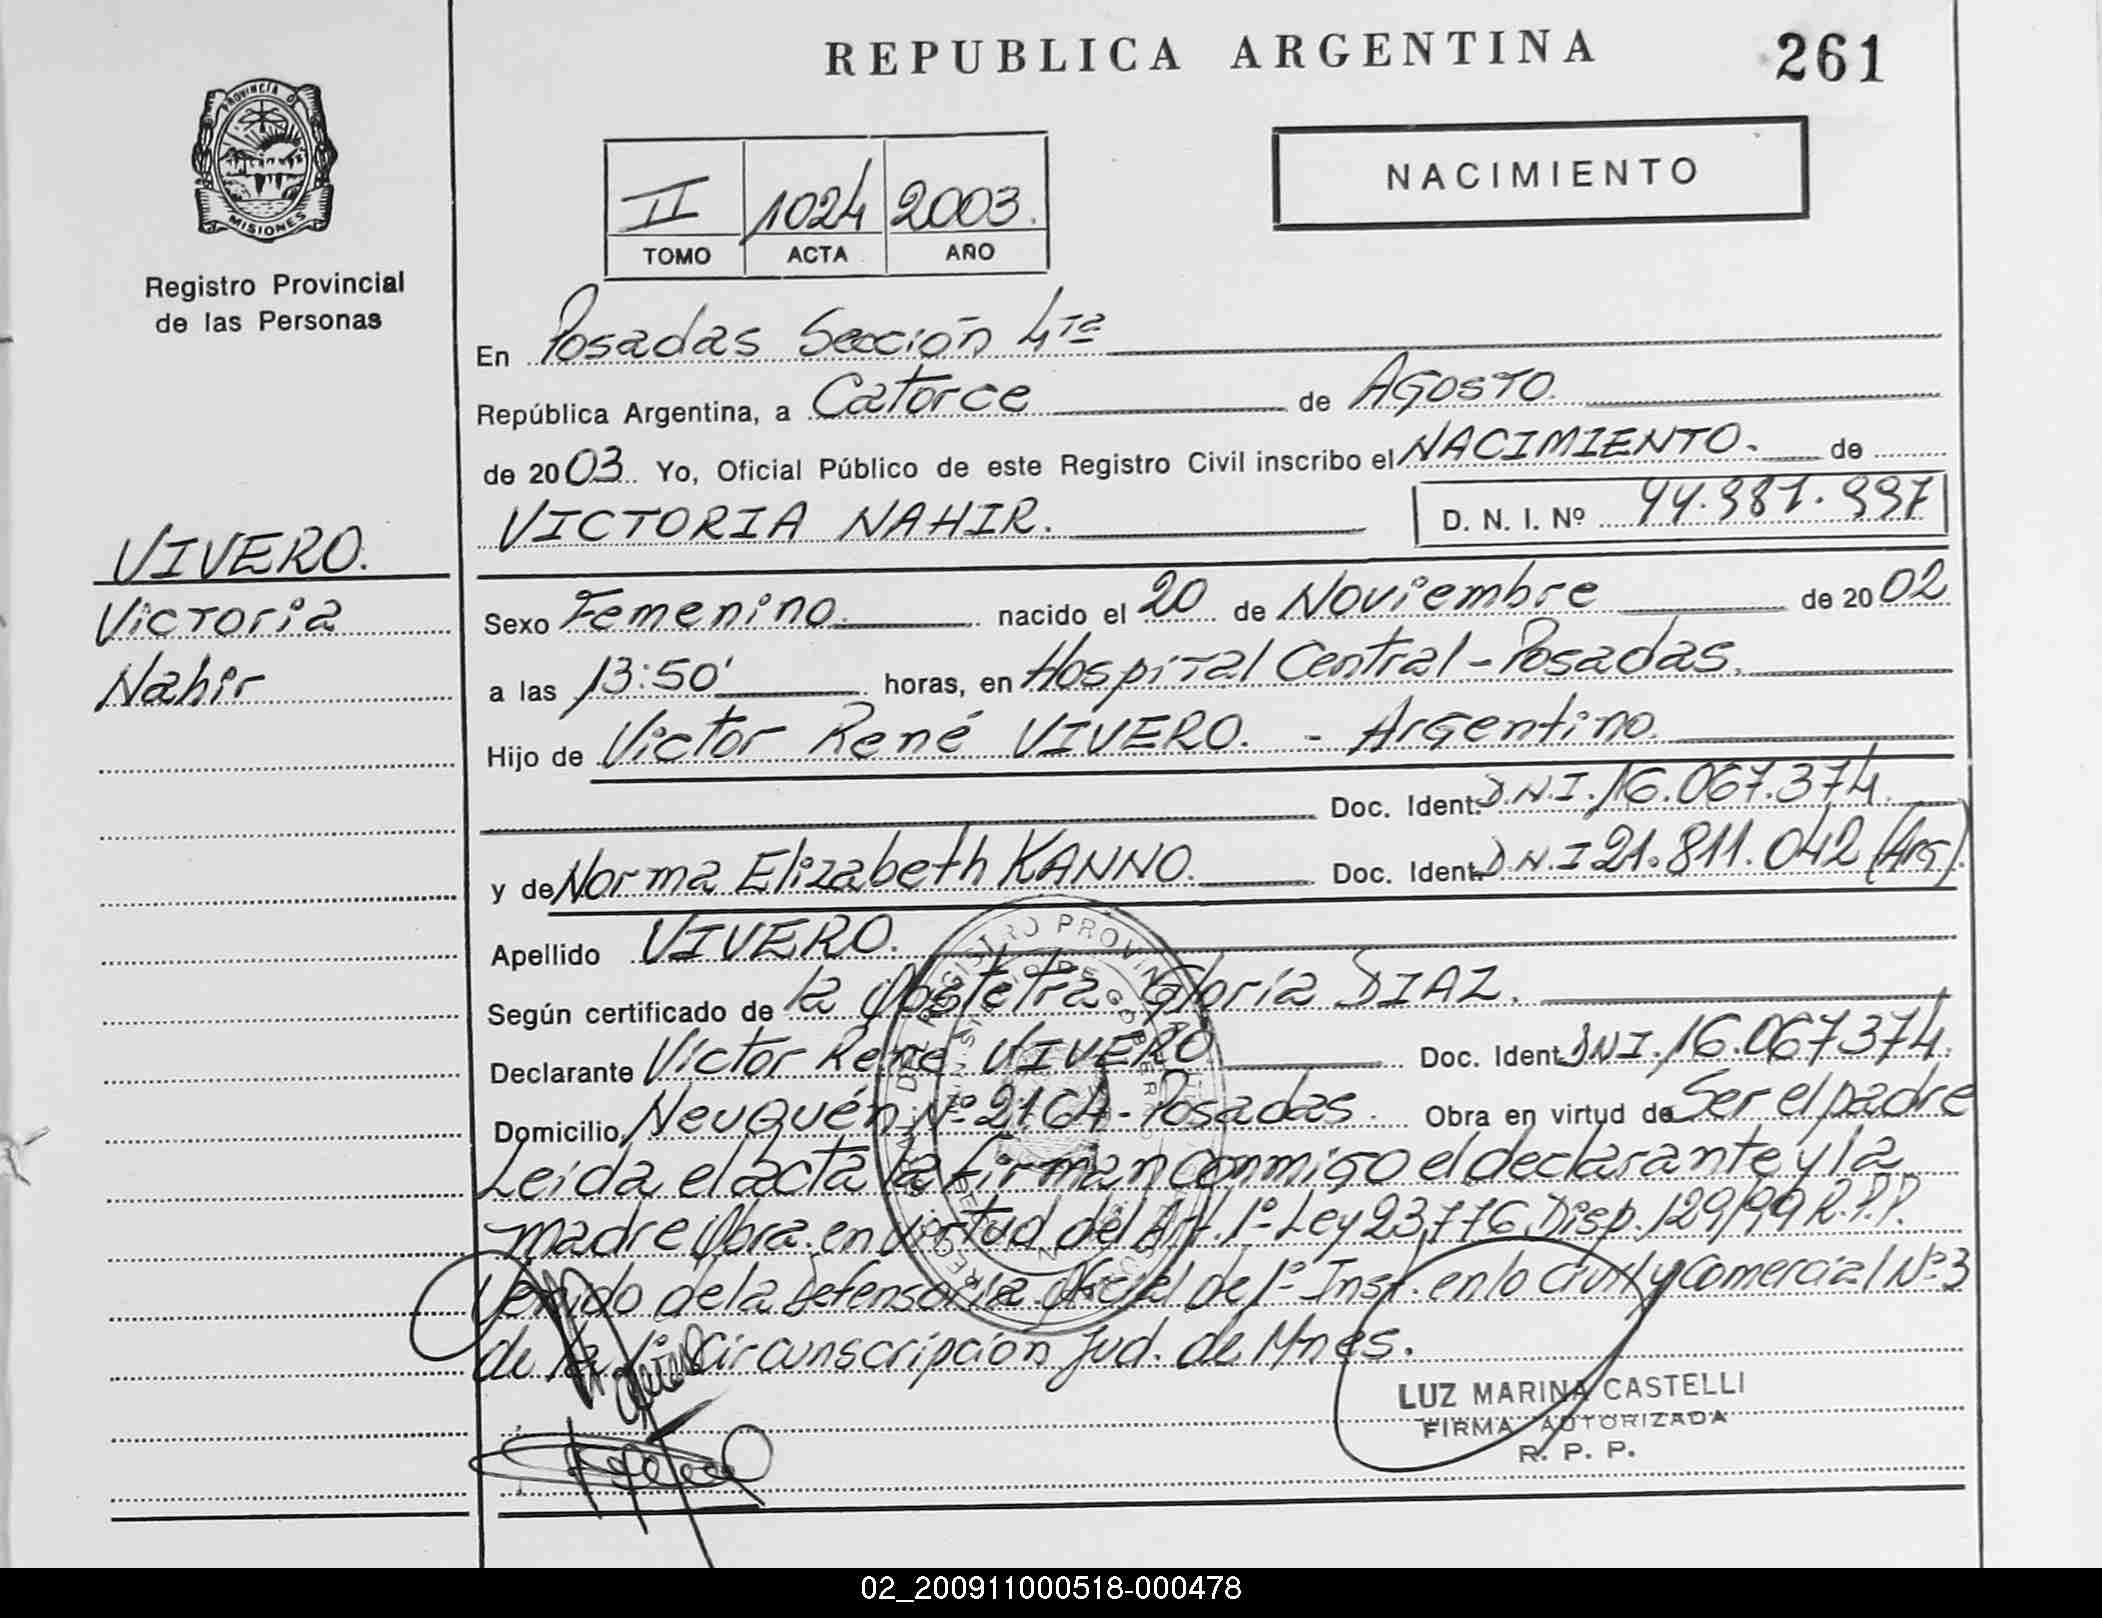 REPUBLICA ARGENTINA
261
PROVINCIA DE
MISIONES
Registro Provincial
de las Personas
II 1024 2003.
TOMO ACTA AÑO
NACIMIENTO
En Posadas Sección 4ta
República Argentina, a Catorce de Agosto.
de 2003. Yo, Oficial Público de este Registro Civil inscribo el NACIMIENTO. de
VICTORIA NAHIR. D. N. I. Nº 44.387.997
VIVERO.
Victoria
Nahir
Sexo Femenino. nacido el 20 de Noviembre de 2002
a las 13:50' horas, en Hospital Central - Posadas.
Hijo de Victor René VIVERO. - Argentino.
Doc. Ident. D.N.I. 16.067.374.
y de Norma Elizabeth KANNO. Doc. Ident. D.N.I 21.811.042 (Arg).
Apellido VIVERO.
Según certificado de la Obstetra Gloria DIAZ.
Declarante Victor René VIVERO Doc. Ident. DNI. 16.067.374.
Domicilio Neuquén Nº 2104 - Posadas. Obra en virtud de Ser el padre
Leída el acta la firman conmigo el declarante y la
madre Obra en virtud del Art. 1º Ley 23.776 Disp. 129/99 R.P.P.
Venido de la Defensoría Oficial de 1º Inst. en lo Civil y Comercial Nº 3
de la 1º Circunscripción Jud. de Mnes.
LUZ MARINA CASTELLI
FIRMA AUTORIZADA
R. P. P.
02_200911000518-000478